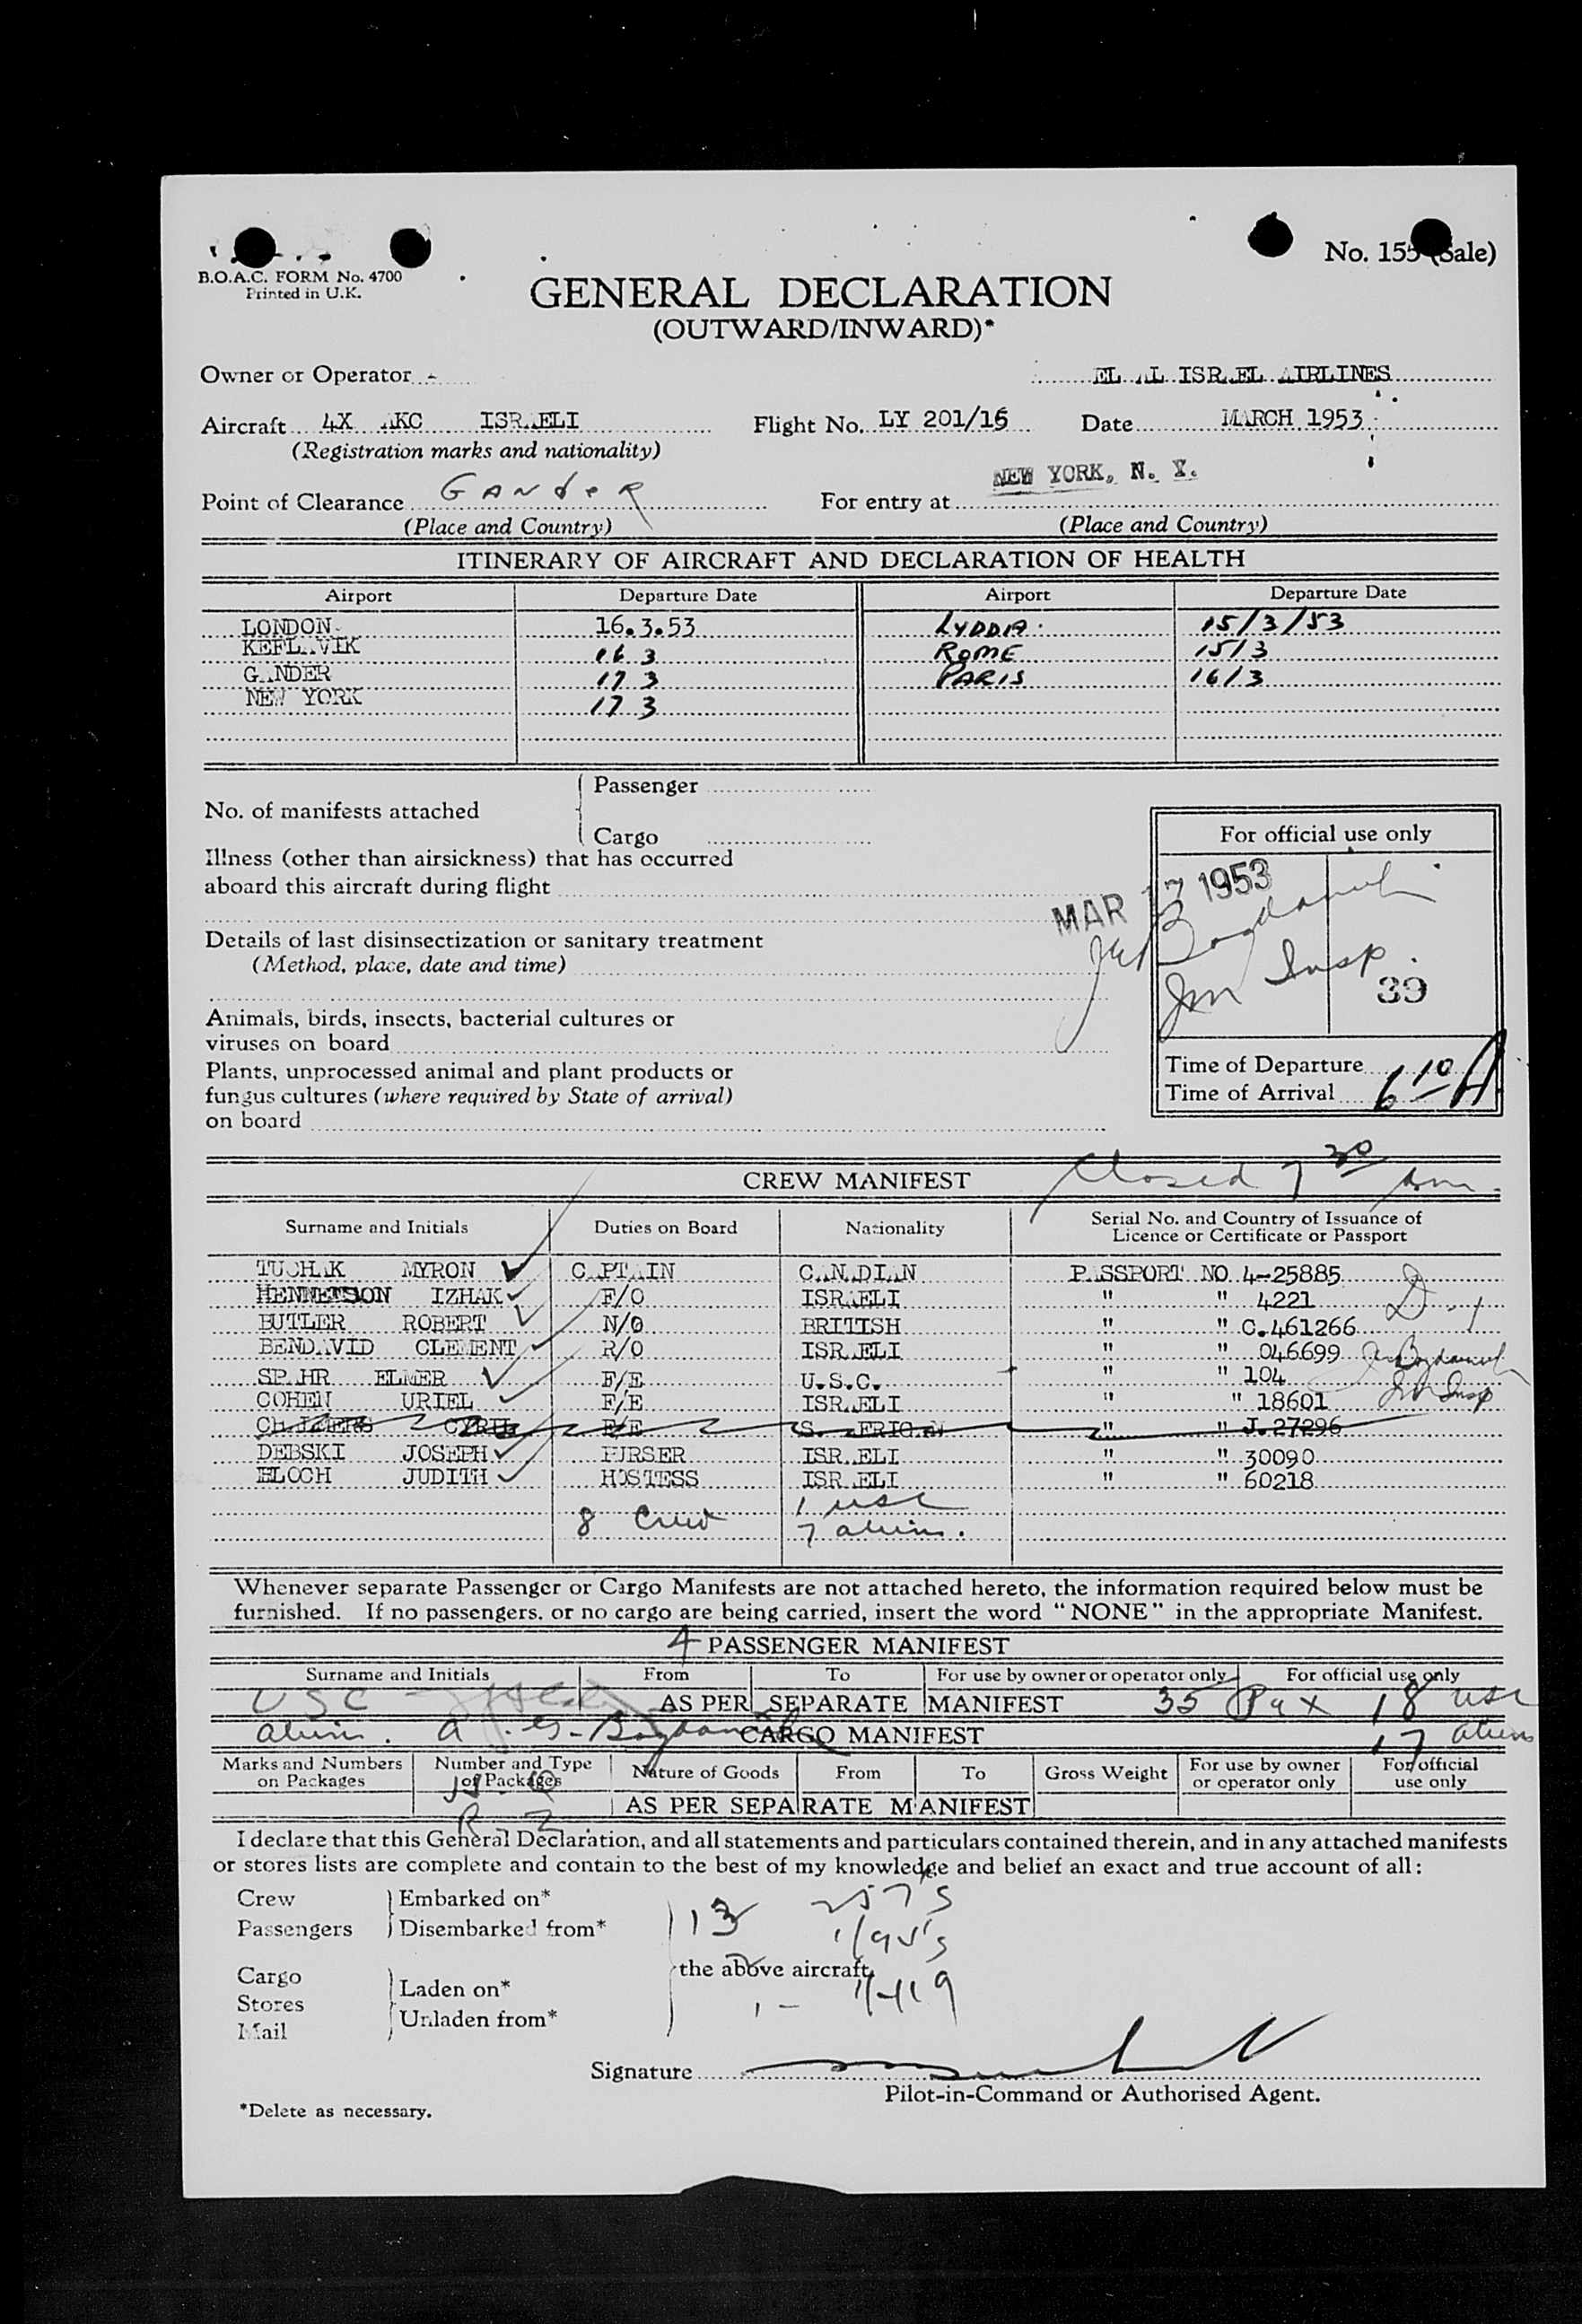 No. 155 (Sale)
B.O.A.C. FORM No. 4700
Printed in U.K.
GENERAL DECLARATION
(OUTWARD/INWARD)*
Owner or Operator EL AL ISRAEL AIRLINES
Aircraft 4X AKC ISRAELI Flight No. LY 201/16 Date MARCH 1953
(Registration marks and nationality)
Point of Clearance GANDER For entry at NEW YORK, N. Y.
(Place and Country) (Place and Country)
ITINERARY OF AIRCRAFT AND DECLARATION OF HEALTH
Airport Departure Date Airport Departure Date
LONDON 16.3.53 LYDDIA 15/3/53
KEFLAVIK 16 3 ROME 15/3
GANDER 17 3 PARIS 16/3
NEW YORK 17 3
No. of manifests attached
Passenger
Cargo
Illness (other than airsickness) that has occurred
aboard this aircraft during flight
Details of last disinsectization or sanitary treatment
(Method, place, date and time)
Animals, birds, insects, bacterial cultures or
viruses on board
Plants, unprocessed animal and plant products or
fungus cultures (where required by State of arrival)
on board
For official use only
MAR 17 1953
Imm Insp.
39
Time of Departure
Time of Arrival 6 10 A
CREW MANIFEST Closed 7 30 Am.
Surname and Initials Duties on Board Nationality Serial No. and Country of Issuance of
Licence or Certificate or Passport
TUCHAK MYRON CAPTAIN CANADIAN PASSPORT NO 4-25885
HENNETSON IZHAK F/O ISRAELI " " 4221
BUTLER ROBERT N/O BRITISH " " C.461266
BENDAVID CLEMENT R/O ISRAELI " " 046699
SPAHR ELMER F/E U.S.C. " " 104
COHEN URIEL F/E ISRAELI " " 18601 Imm Insp
CHALMERS CYRIL F/E S. AFRICAN " " J.27296
DEBSKI JOSEPH PURSER ISRAELI " " 30090
BLOCH JUDITH HOSTESS ISRAELI " " 60218
8 Crew 1 usc
7 aliens.
Whenever separate Passenger or Cargo Manifests are not attached hereto, the information required below must be
furnished. If no passengers, or no cargo are being carried, insert the word "NONE" in the appropriate Manifest.
4 PASSENGER MANIFEST
Surname and Initials From To For use by owner or operator only For official use only
USC AS PER SEPARATE MANIFEST 35 Pax 18 usc
aliens. CARGO MANIFEST 17 aliens
Marks and Numbers on Packages Number and Type of Packages Nature of Goods From To Gross Weight For use by owner or operator only For official use only
AS PER SEPARATE MANIFEST
I declare that this General Declaration, and all statements and particulars contained therein, and in any attached manifests
or stores lists are complete and contain to the best of my knowledge and belief an exact and true account of all:
Crew Embarked on*
Passengers Disembarked from* 13 257's
Cargo the above aircraft
Laden on*
Stores
Unladen from*
Mail
Signature
Pilot-in-Command or Authorised Agent.
*Delete as necessary.